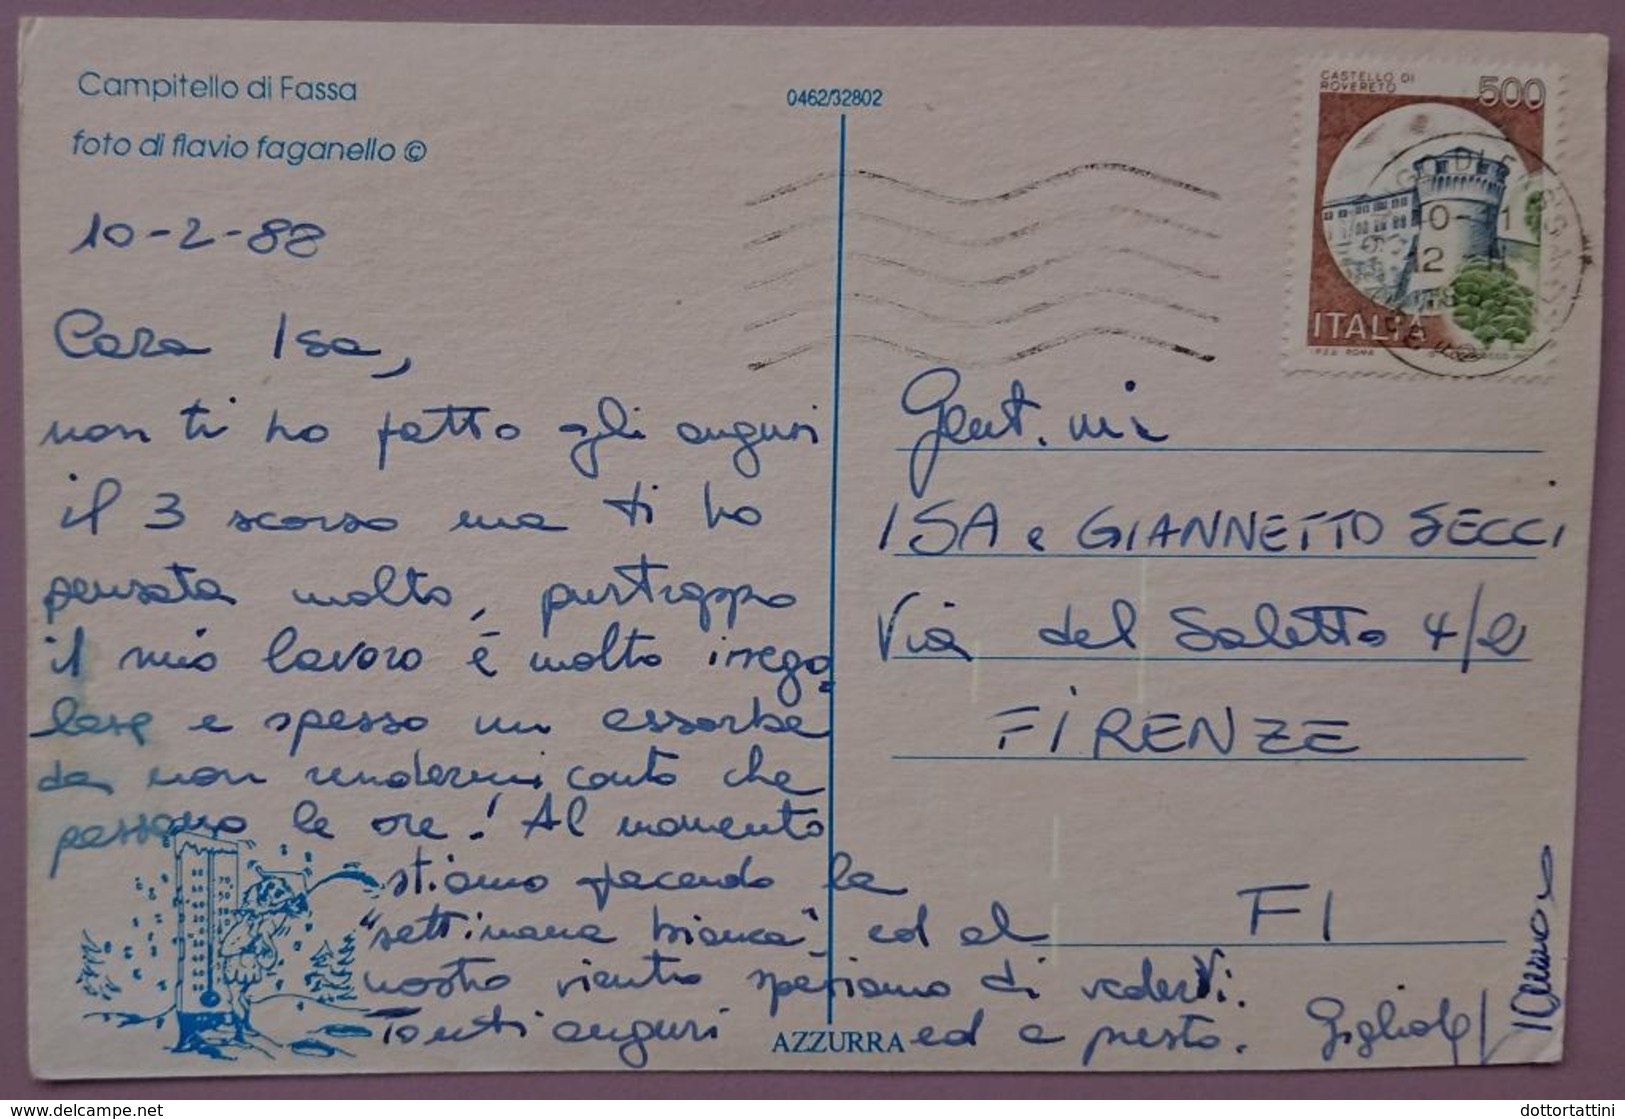 Campitello di Fassa
foto di flavio faganello ©
0462/32802
CASTELLO DI
ROVERETO
500
ITALIA
I.P.Z.S. ROMA
10-11
12 II
1988
10-2-88
Cara Isa,
non ti ho fatto gli auguri
il 3 scorso ma ti ho
pensata molto, purtroppo
il mio lavoro è molto irrego=
lare e spesso mi assorbe
da non rendermi conto che
passano le ore! Al momento
stiamo facendo la
"settimana bianca" ed al
nostro rientro speriamo di vedervi.
Tanti auguri ed a presto.
Gent.mi
ISA e GIANNETTO SECCI
Via del Saletto 4/
FIRENZE
FI
AZZURRA
dottortattini